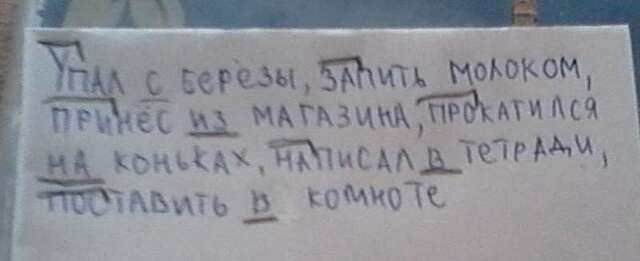 Упал с березы, запить молоком,
принёс из магазина, прокатился
на коньках, написал в тетради,
поставить в комноте